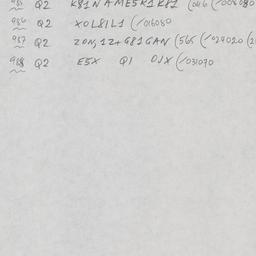 985 Q2 K81NAMESK1K81 (046 (/008080
986 Q2 XOL8IL1 (/016080
987 Q2 ZON,1Z+G81GAN (565 (/027020 (2
988 Q2 E5X Q1 OJX (/031070